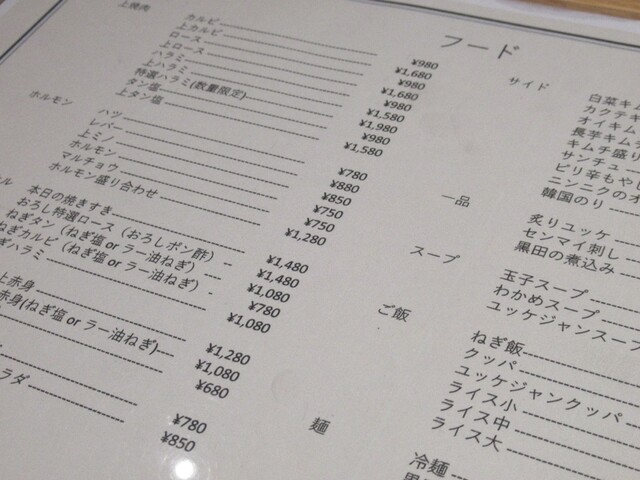 フード
上焼肉
カルビ ¥980
上カルビ ¥1,680
ロース ¥980
上ロース ¥1,680
ハラミ ¥980
上ハラミ ¥1,580
特選ハラミ(数量限定) ¥1,980
タン塩 ¥980
上タン塩 ¥1,580
ホルモン
ハツ ¥780
レバー ¥880
上ミノ ¥850
ホルモン ¥750
マルチョウ ¥750
ホルモン盛り合わせ ¥1,280
本日の焼きすき ¥1,480
おろし特選ロース（おろしポン酢） ¥1,480
ねぎタン（ねぎ塩 or ラー油ねぎ） ¥1,080
ねぎカルビ（ねぎ塩 or ラー油ねぎ） ¥780
ぎハラミ ¥1,080
上赤身 ¥1,280
赤身(ねぎ塩 or ラー油ねぎ) ¥1,080
¥680
ラダ ¥780
¥850
サイド
白菜キ
カクテキ
オイキム
長芋キムチ
キムチ盛り
サンチュ
ピリ辛もや
ニンニクのオ
韓国のり
一品
炙りユッケ
センマイ刺し
黒田の煮込み
スープ
玉子スープ
わかめスープ
ユッケジャンスープ
ご飯
ねぎ飯
クッパ
ユッケジャンクッパ
ライス小
ライス中
ライス大
麺
冷麺